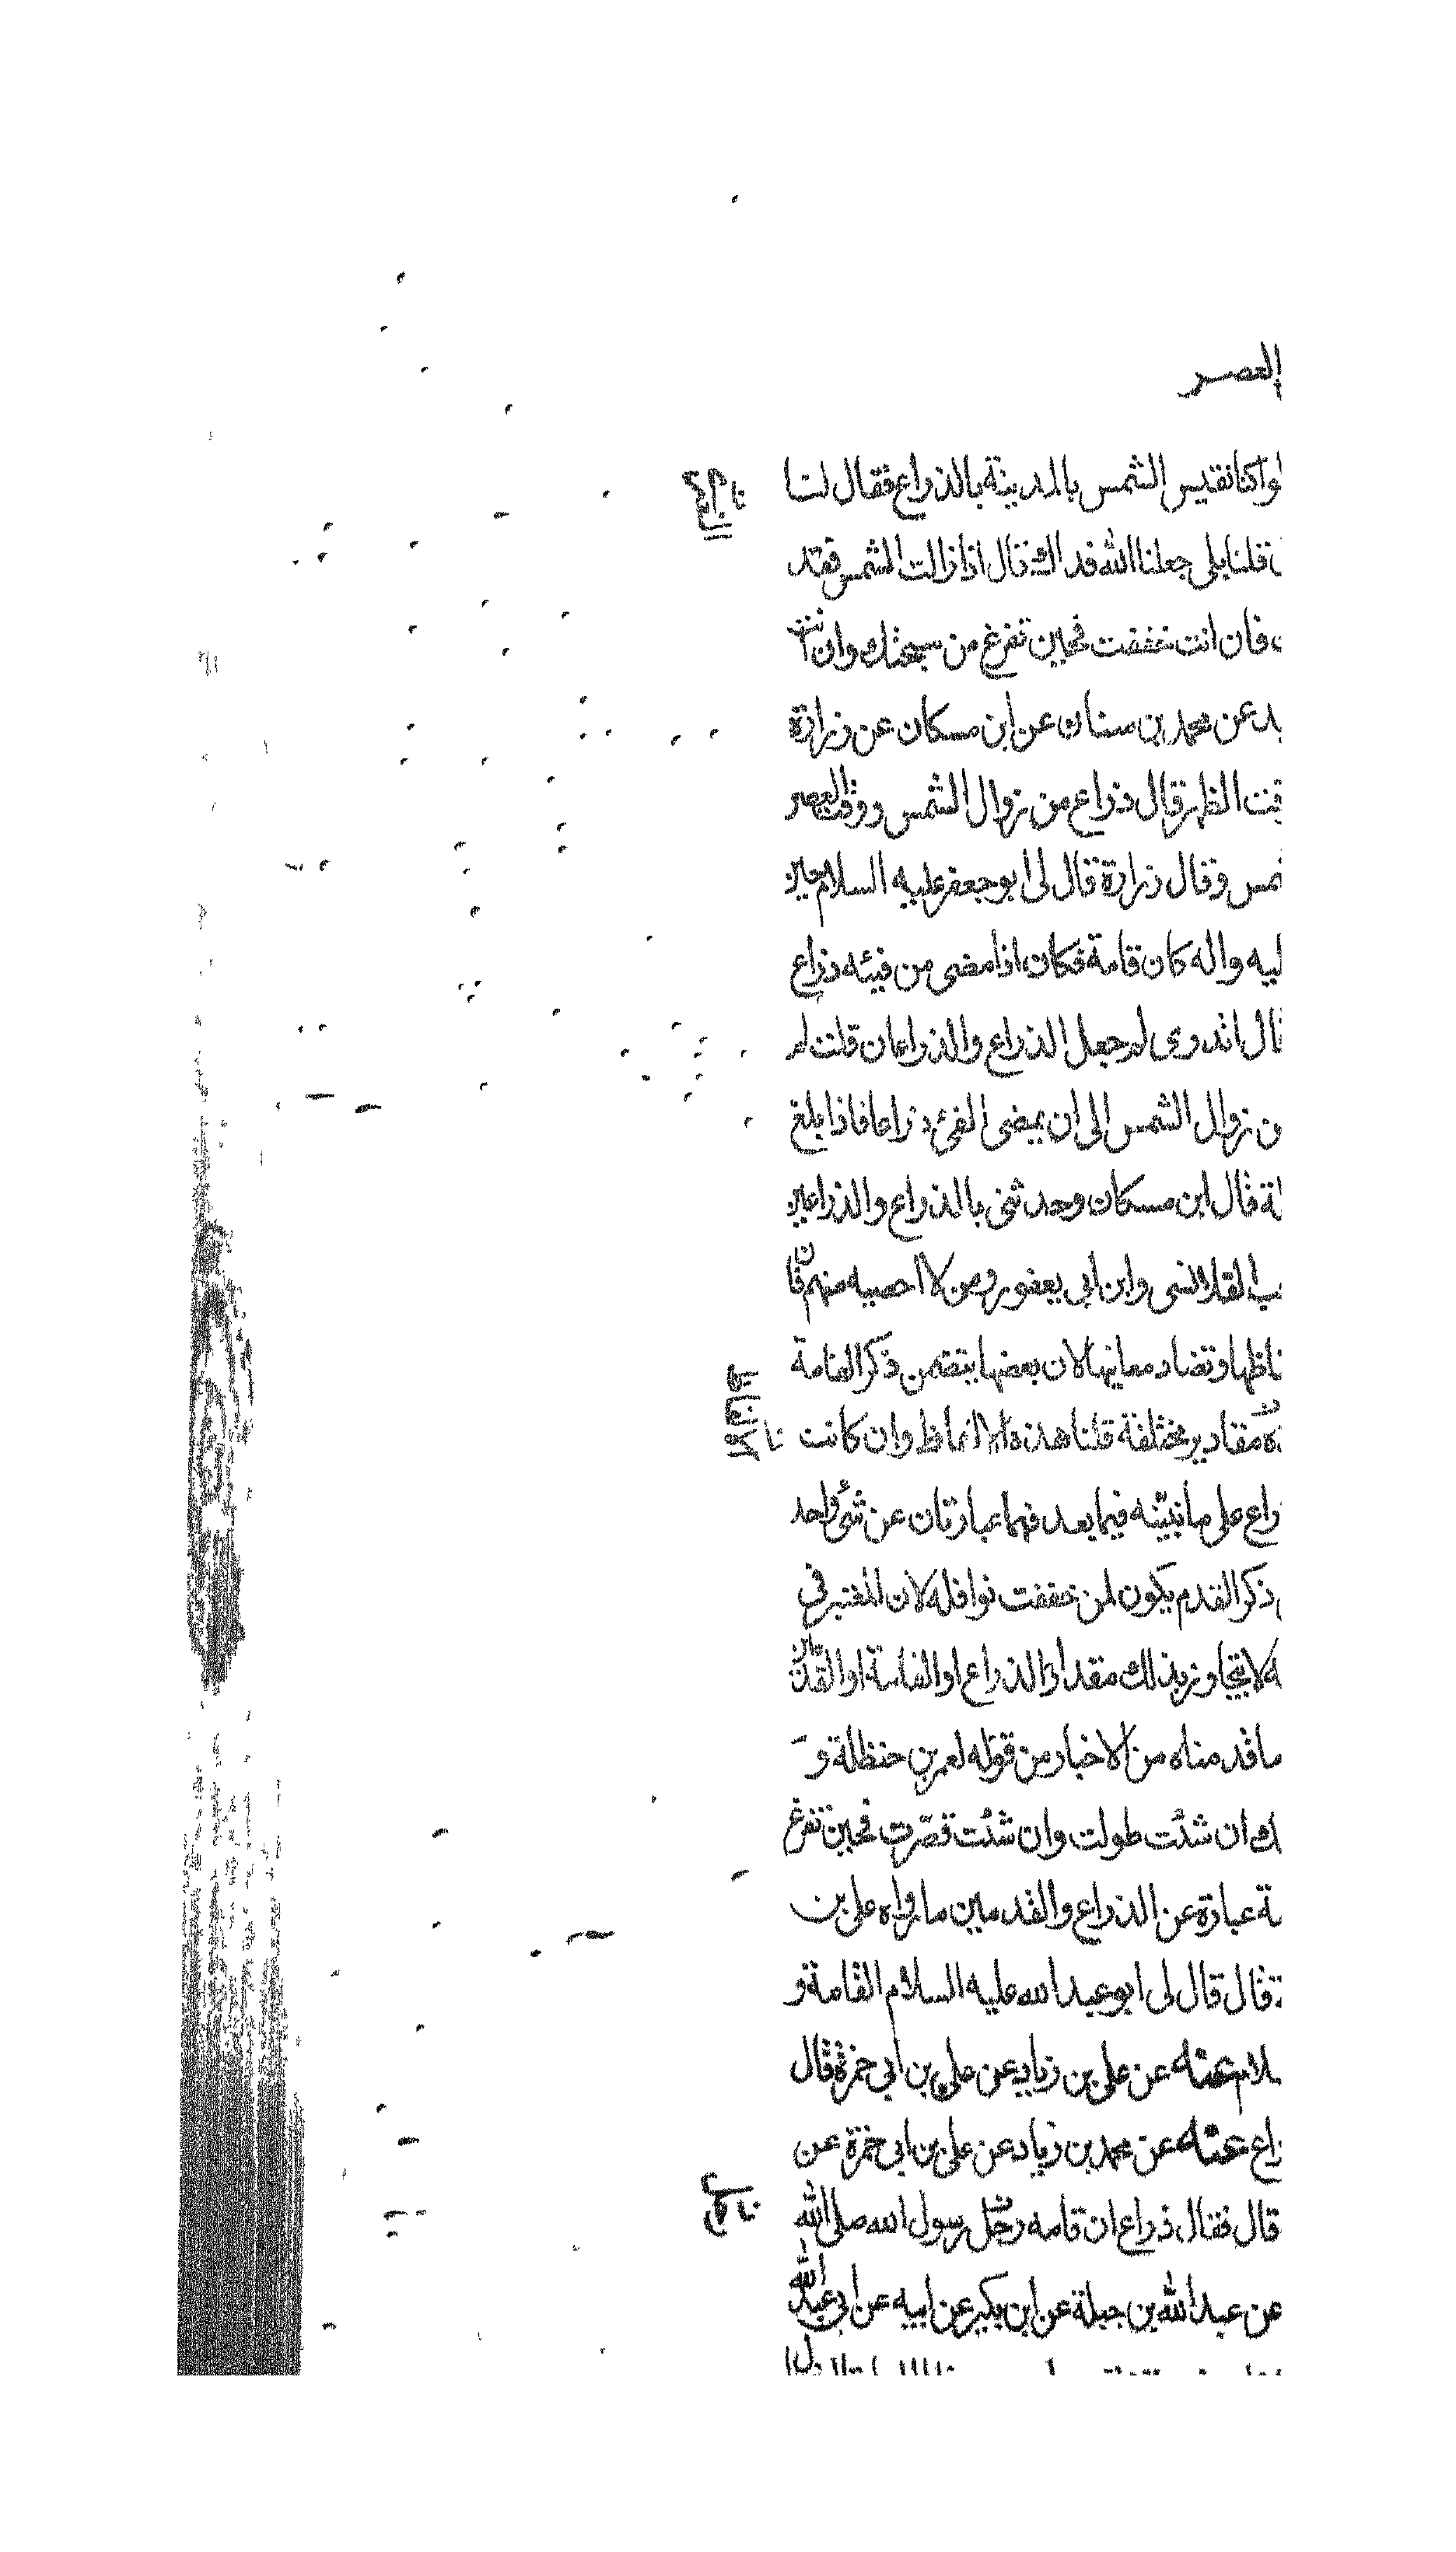 العصر
وا كنا نقيس الشمس بالمدينة بالذراع فقال لنا
قلنا بلى جعلنا الله فداك قال اذا زالت الشمس فقد
فان انت خففت فحين تفرغ من سبحتك وان انت
عن محمد بن سنان عن ابن مسكان عن زرارة
قت الظهر قال ذراع من زوال الشمس ووقت العصر
مس وقال زرارة قال لى ابو جعفر عليه السلام حين
ليه واله كان قامة فكان اذا مضى من فيئه ذراع
قال اتدرى لم جعل الذراع والذراعان قلت لم
ن زوال الشمس الى ان يمضى الفئ ذراعا فاذا بلغ
قال ابن مسكان وحدثنى بالذراع والذراعين
ب القلانسى وابن ابى يعفور ومن لا احصيه منهم فان
فاظها وتضاد معانيها لان بعضها يتضمن ذكر القامة
مقادير مختلفة قلنا هذه الالفاظ وان كانت
الالفاظ
راع على ما نبينه فيما بعد فهما عبارتان عن شئ واحد
ذكر القدم يكون لمن خففت نوافله لان المعتبر فى
لا يتجاوز بذلك مقدار الذراع او القامة او القدمين
ما قدمناه من الاخبار من قوله لعمر بن حنظلة و
ك ان شئت طولت وان شئت قصرت فحين تفرغ
ة عبارة عن الذراع والقدمين ما رواه على بن
قال قال لى ابو عبد الله عليه السلام القامة و
لام عنه عن على بن زياد عن على بن ابى حمزة قال
راع عنه عن محمد بن زياد عن على بن ابى حمزة عن
قال فقال ذراع ان قامه رحل رسول الله صلى الله
عن عبد الله بن جبلة عن ابن بكير عن ابيه عن ابى عبد الله